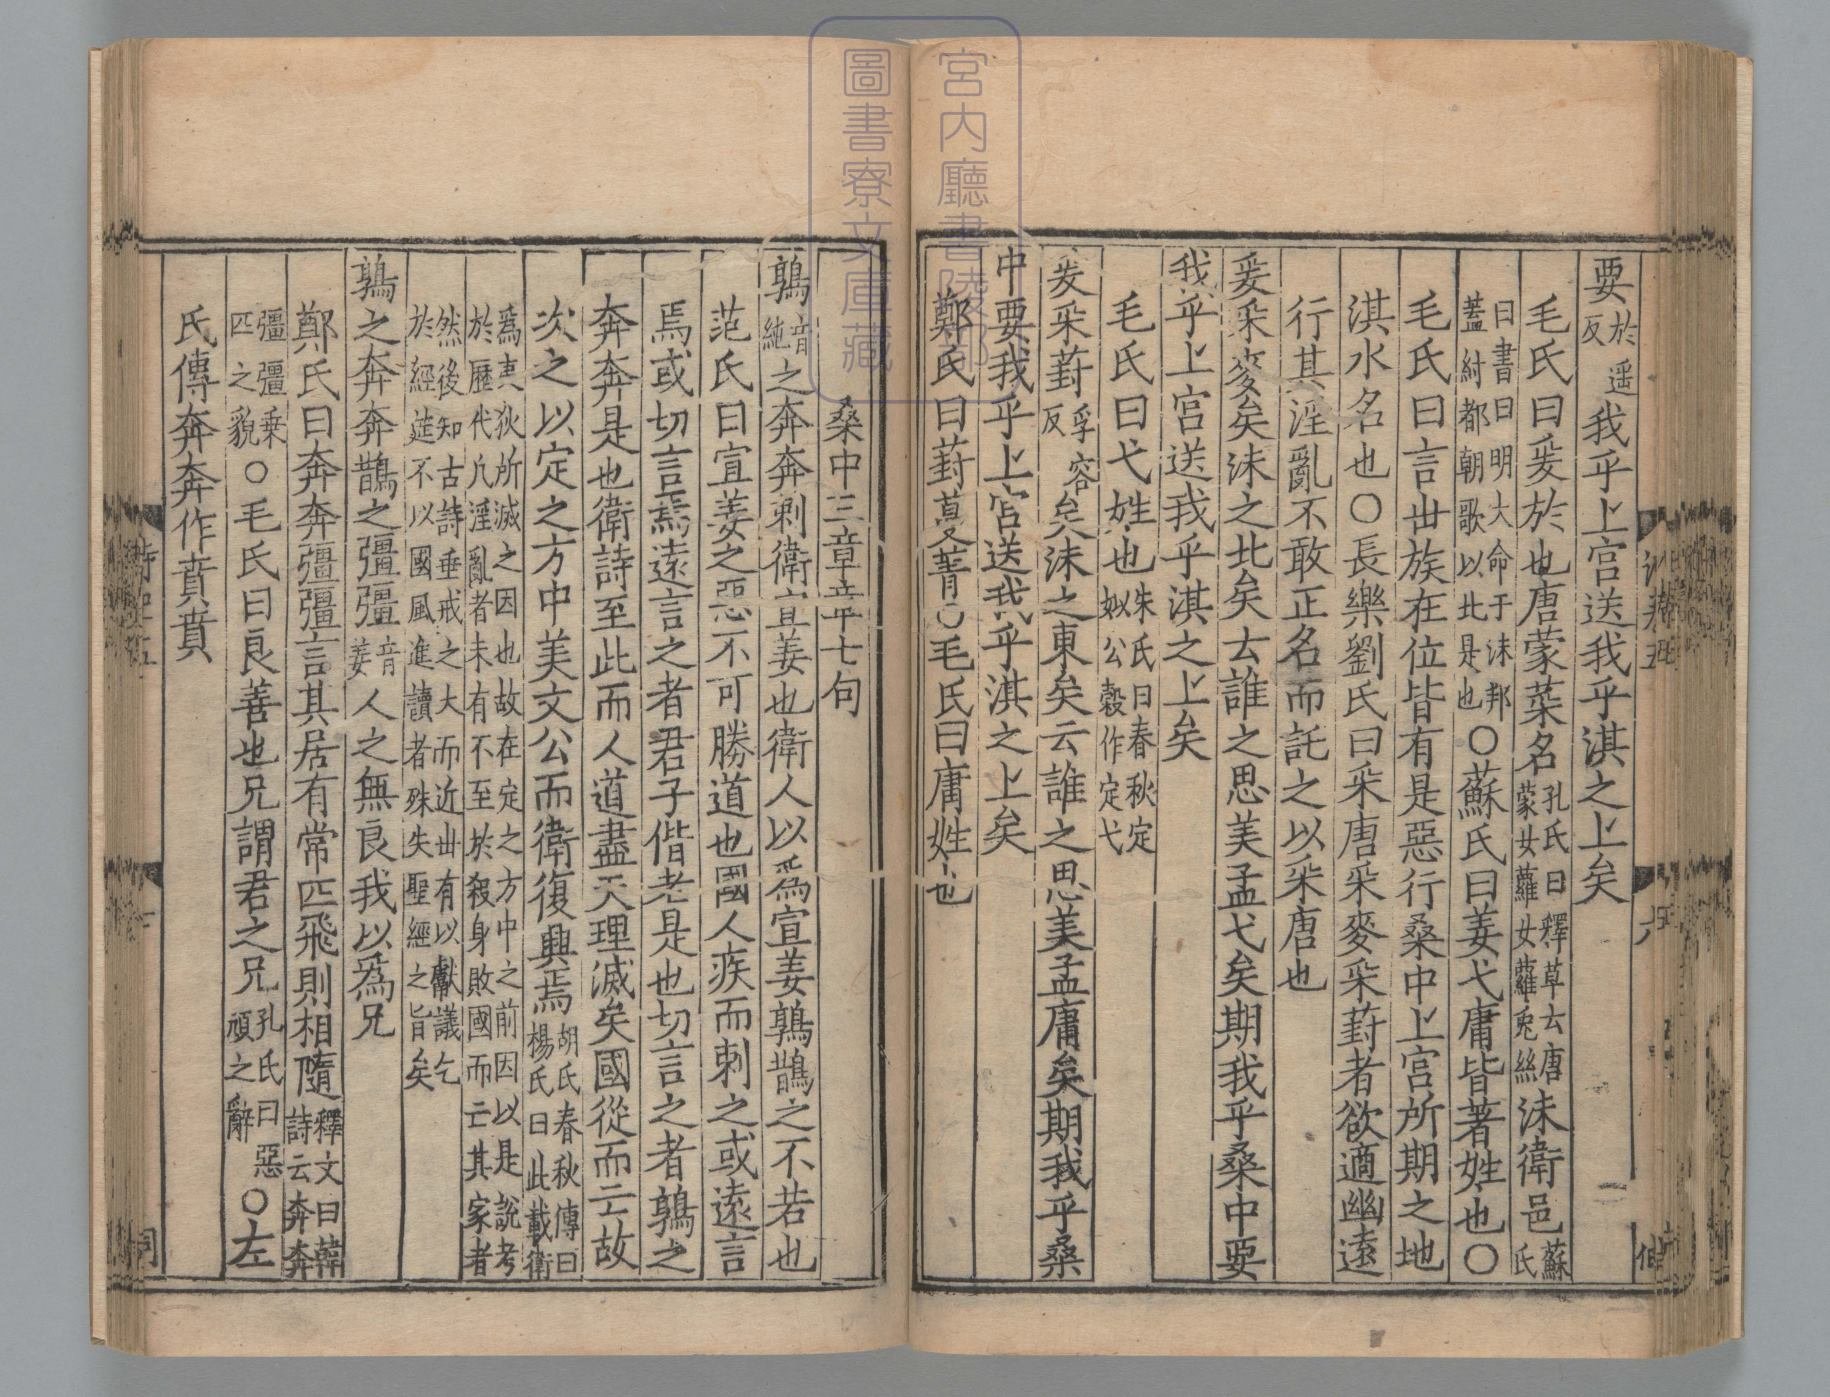 要於遥反我乎上宮送我乎淇之上矣
毛氏曰爰於也唐蒙菜名孔氏曰釋草云唐蒙女蘿女蘿兎絲沬衛邑蘇氏
曰書曰明大命于沬邦蓋紂都朝歌以北是也〇蘇氏曰姜弋庸皆著姓也〇
毛氏曰言丗族在位皆有是惡行桑中上宮所期之地
淇水名也〇長樂劉氏曰采唐采麥采葑者欲適幽遠
行其淫亂不敢正名而託之以采唐也
爰采麥矣沬之北矣云誰之思美孟弋矣期我乎桑中要
我乎上宮送我乎淇之上矣
毛氏曰弋姓也朱氏曰春秋定姒公穀作定弋
爰采葑孚容反矣沬之東矣云誰之思美孟庸矣期我乎桑
中要我乎上宮送我乎淇之上矣
鄭氏曰葑蔓菁〇毛氏曰庸姓也
桑中三章章七句
鶉音純之奔奔刺衛宣姜也衛人以爲宣姜鶉鵲之不若也
范氏曰宣姜之惡不可勝道也國人疾而刺之或遠言
焉或切言焉遠言之者君子偕老是也切言之者鶉之
奔奔是也衛詩至此而人道盡天理滅矣國從而亡故
次之以定之方中美文公而衛復興焉胡氏春秋傳曰楊氏曰此載衛
爲夷狄所滅之因也故在定之方中之前因以是說考於歷代凡淫亂者未有不至於殺身敗國而亡其家者
然後知古詩垂戒之大而近丗有以獻議乞於經筵不以國風進讀者殊失聖經之旨矣
鶉之奔奔鵲之彊彊音姜人之無良我以爲兄
鄭氏曰奔奔彊彊言其居有常匹飛則相隨釋文曰韓詩云奔奔
彊彊乗匹之貌〇毛氏曰良善也兄謂君之兄孔氏曰惡頑之辭〇左
氏傳奔奔作賁賁
宮内廳書陵部
圖書寮文庫藏